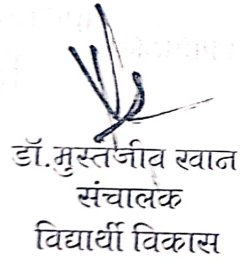 डॉ.मुस्तजीव खान
संचालक
विद्यार्थी विकास